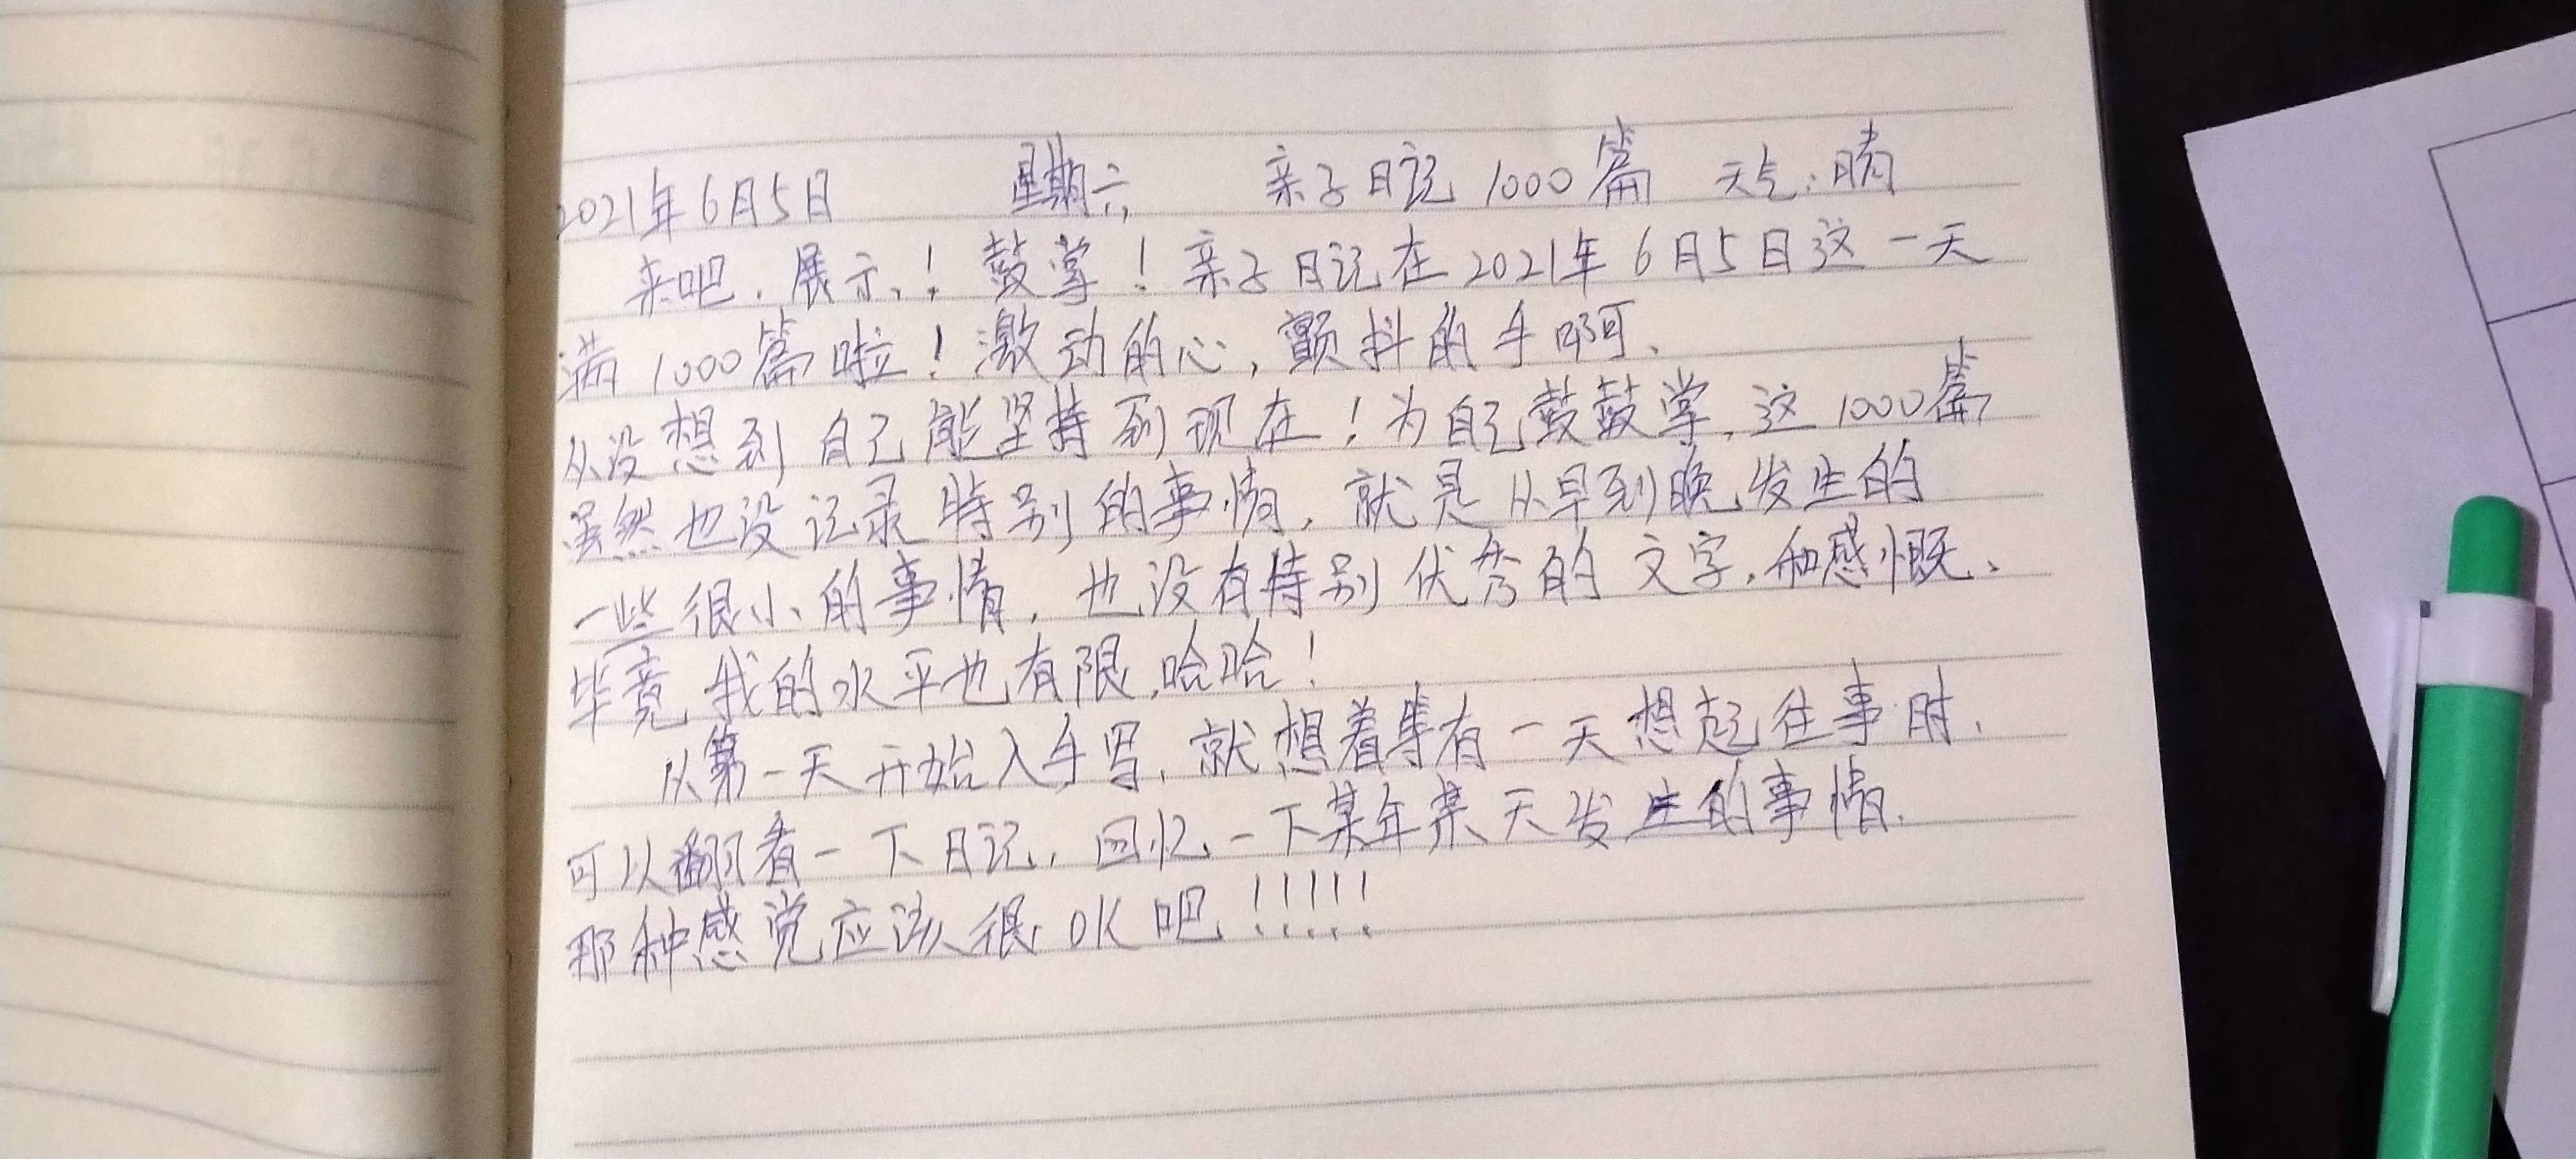 2021年6月5日 星期六 亲子日记1000篇 天气:晴
来吧.展示!鼓掌!亲子日记在2021年6月5日这一天
满1000篇啦!激动的心,颤抖的手啊.
从没想到自己能坚持到现在!为自己鼓鼓掌.这1000篇
虽然也没记录特别的事情,就是从早到晚发生的
一些很小的事情,也没有特别优秀的文字.和感慨.
毕竟我的水平也有限,哈哈!
从第一天开始入手写,就想着等有一天想起往事时.
可以翻看一下日记,回忆一下某年某天发生的事情.
那种感觉应该很OK吧!!!!!